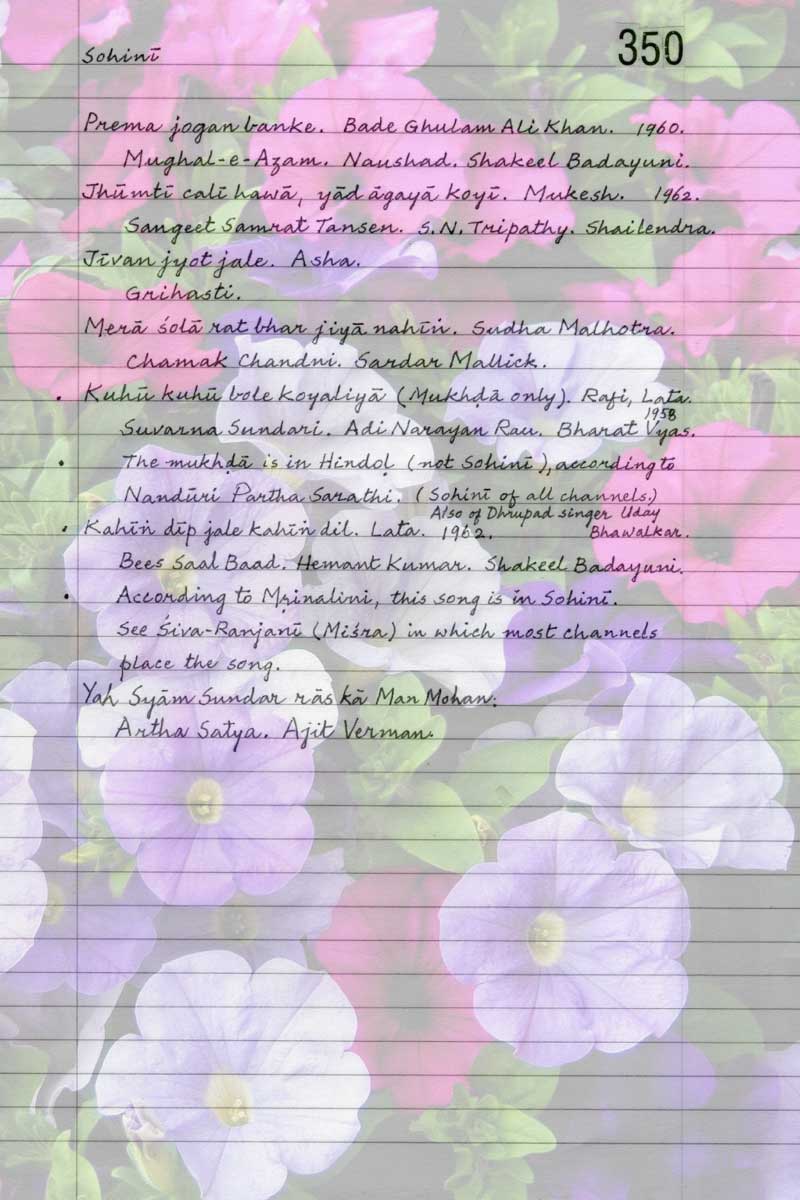 Sohinī
350
Prema jogan banke. Bade Ghulam Ali Khan. 1960.
Mughal-e-Azam. Naushad. Shakeel Badayuni.
Jhūmtī calī hawā, yād āgayā koyī. Mukesh. 1962.
Sangeet Samrat Tansen. S.N. Tripathy. Shailendra.
Jīvan jyot jale. Asha.
Grihasti.
Merā śolā rat bhar jiyā nahīṅ. Sudha Malhotra.
Chamak Chandni. Sardar Mallick.
. Kuhū kuhū bole koyaliyā (Mukhḍā only). Rafi, Lata.
1958
Suvarna Sundari. Adi Narayan Rau. Bharat Vyas.
. The mukhḍā is in Hindoḷ (not Sohinī), according to
Nandūri Partha Sarathi. (Sohinī of all channels.)
Also of Dhrupad singer Uday
. Kahīṅ dīp jale kahīṅ dil. Lata. 1962. Bhawalkar.
Bees Saal Baad. Hemant Kumar. Shakeel Badayuni.
. According to Mṛinalini, this song is in Sohinī.
See Śiva-Ranjanī (Miśra) in which most channels
place the song.
Yah Syām Sundar rās kā Man Mohan:
Artha Satya. Ajit Verman.